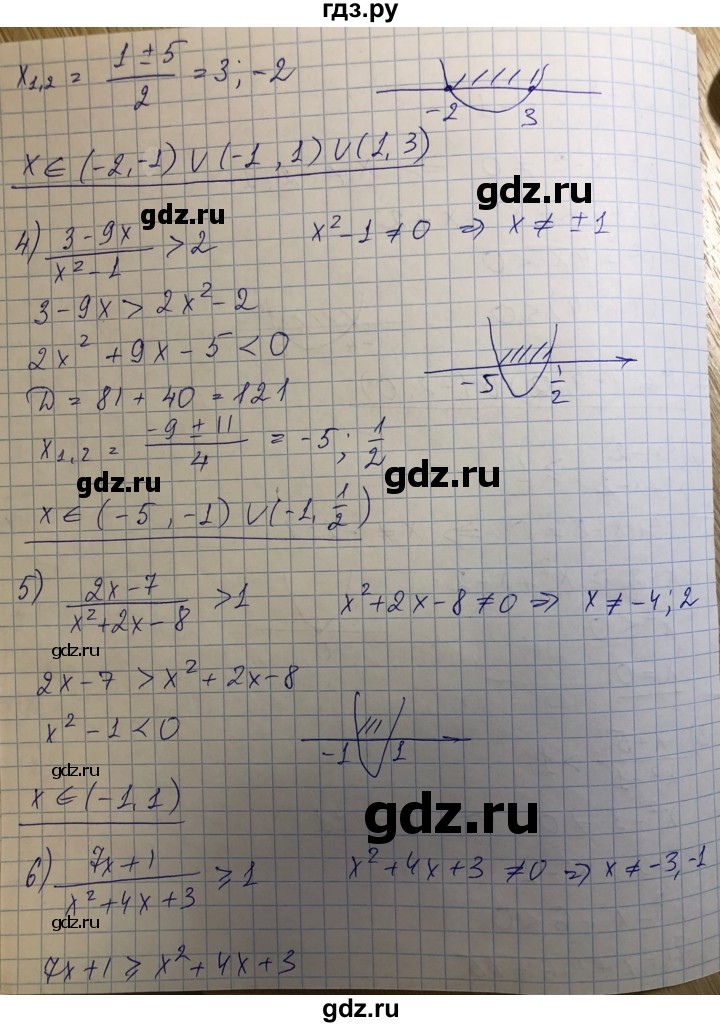 гдз.ру
x₁,₂ = (1 ± 5)/2 = 3; -2
-2 3
x ∈ (-2, -1) ∪ (-1, 1) ∪ (1, 3)
gdz.ru
gdz.ru
4) (3 - 9x)/(x² - 1) > 2 x² - 1 ≠ 0 ⇒ x ≠ ± 1
3 - 9x > 2x² - 2
2x² + 9x - 5 < 0
-5 1/2
D = 81 + 40 = 121
x₁,₂ = (-9 ± 11)/4 = -5; 1/2
gdz.ru
gdz.ru
x ∈ (-5, -1) ∪ (-1, 1/2)
5) (2x - 7)/(x² + 2x - 8) > 1 x² + 2x - 8 ≠ 0 ⇒ x ≠ -4; 2
gdz.ru
2x - 7 > x² + 2x - 8
x² - 1 < 0
-1 1
gdz.ru
x ∈ (-1, 1)
gdz.ru
6) (7x + 1)/(x² + 4x + 3) ⩾ 1 x² + 4x + 3 ≠ 0 ⇒ x ≠ -3, -1
gdz.ru
7x + 1 ⩾ x² + 4x + 3
gdz.ru